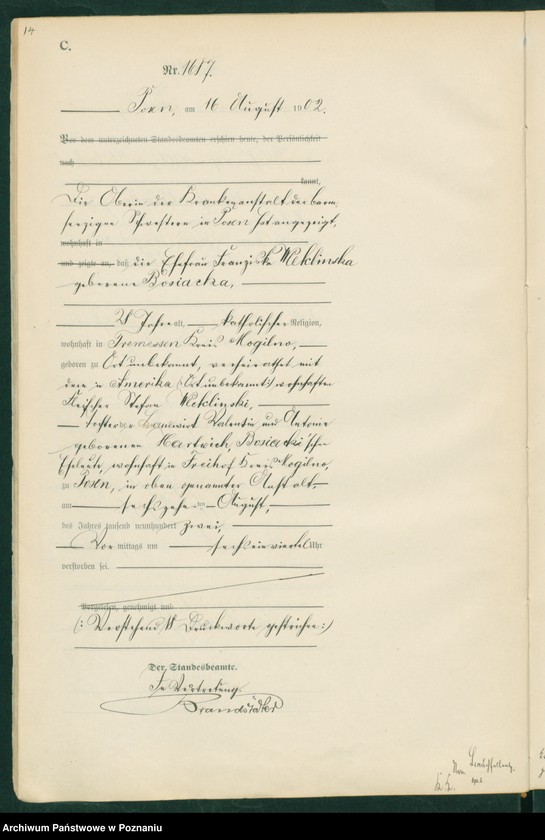 14
C.
Nr. 1617.
Posen, am 16 August 1902.
Vor dem unterzeichneten Standesbeamten erschien heute, der Persönlichkeit
nach
kannt,
Die Oberin der Krankenanstalt der barm
herzigen Schwestern in Posen hat angezeigt,
wohnhaft in
und zeigte an, daß die Ehefrau Franziska Weklinska
geborene Bosiacka,
Jahre alt, katholischer Religion,
wohnhaft in Tremessen Kreis Mogilno,
geboren zu Ort unbekannt, verheirathet mit
dem in Amerika (Ort unbekannt) wohnhaften
Fleischer Stefan Weklinski,
Tochter der Landwirt Valentin und Antonie
geborenen Hartwich, Bosiacki'schen
Eheleute, wohnhaft in Freihof Kreis Mogilno,
zu Posen, in oben genannter Anstalt,
am sechszehnten August,
des Jahres tausend neunhundert zwei,
Vormittags um sechseinviertel Uhr
verstorben sei.
Vorgelesen, genehmigt und
(: Vorstehend Druckworte gestrichen :)
Der Standesbeamte.
In Vertretung.
Brandstädter